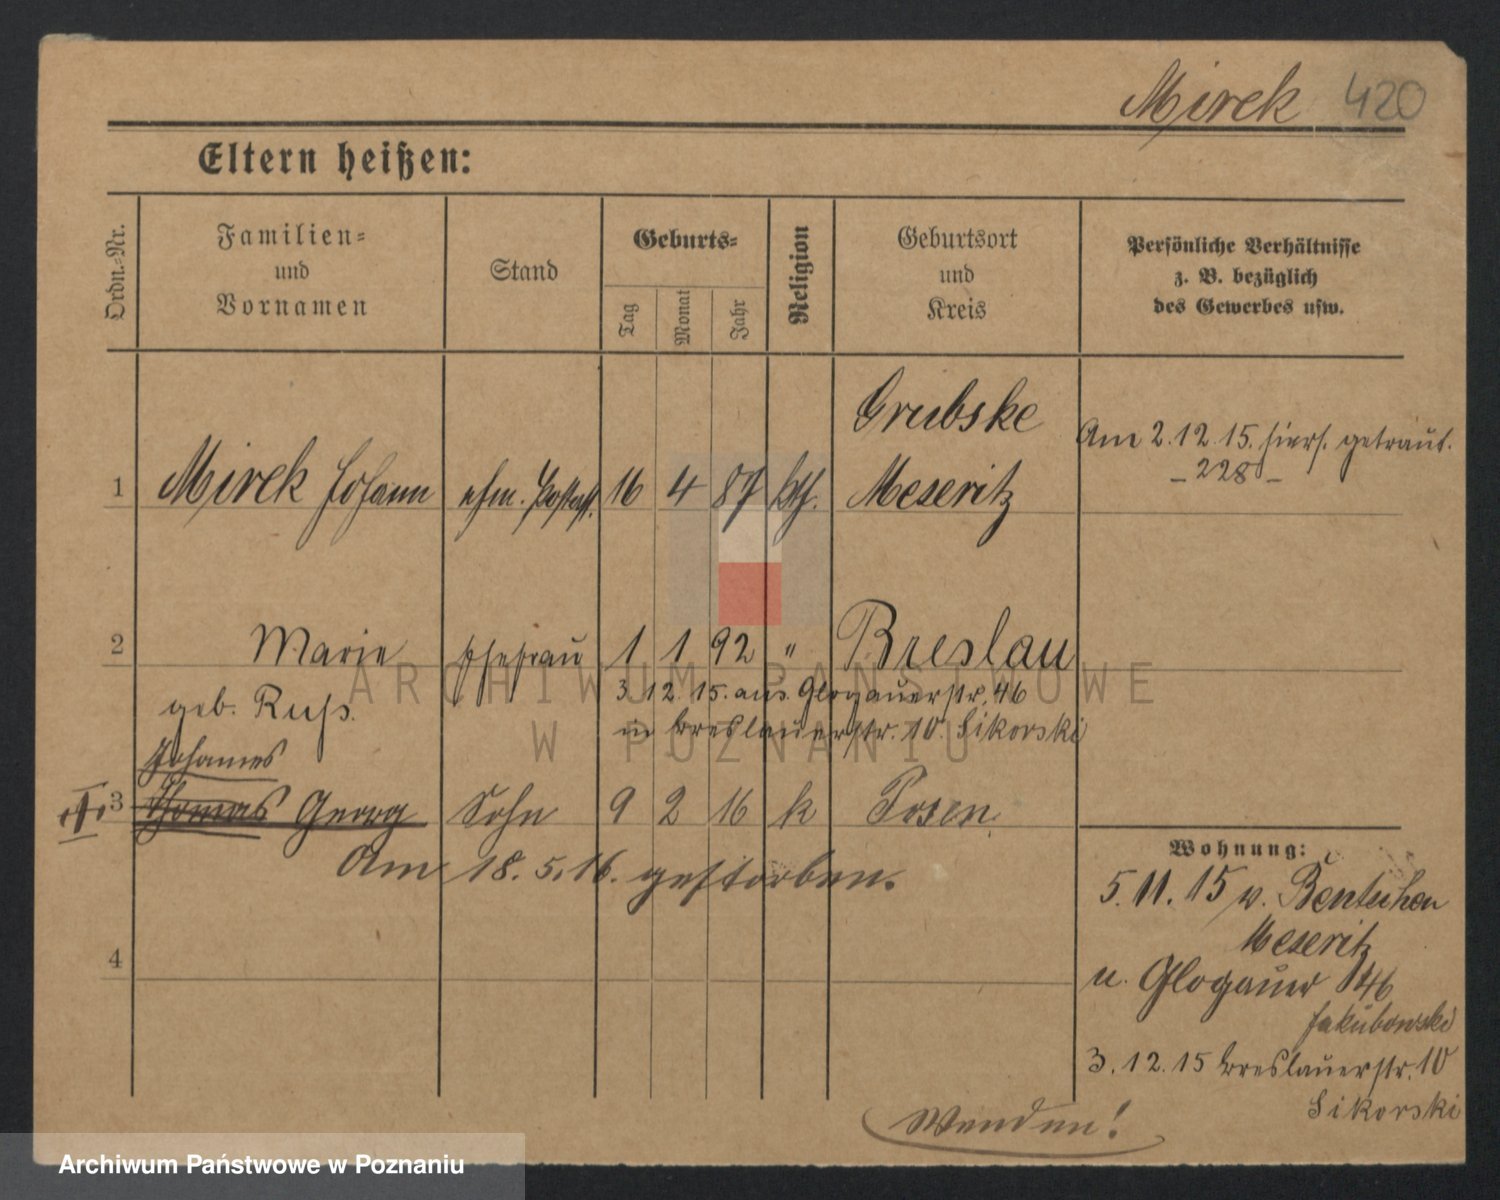 Mirek 420
Eltern heißen:
Ordn.-Nr.
Familien-
und
Vornamen
Stand
Geburts-
Tag
Monat
Jahr
Religion
Geburtsort
und
Kreis
Persönliche Verhältnisse
z. B. bezüglich
des Gewerbes usw.
Grubske
1 Mirek Johann ehm. 16 4 87 kth. Meseritz
Am 2.12.15. hiers. getraut.
- 228 -
2 Marie Ehefrau 1 1 92 " Breslau
geb. Russ.
3.12.15. aus Glogauerstr. 46
in Breslauerstr. 10 Sikorski
Johannes
3 Thomas Georg Sohn 9 2 16 k Posen
Am 18.5.16. gestorben.
4
Wohnung:
5.11.15 v. Bentschen
Meseritz
n. Glogauer 46
Jakubowski
3.12.15 Breslauerstr. 10
Sikorski
Wenden!
ARCHIWUM PAŃSTWOWE
W POZNANIU
Archiwum Państwowe w Poznaniu